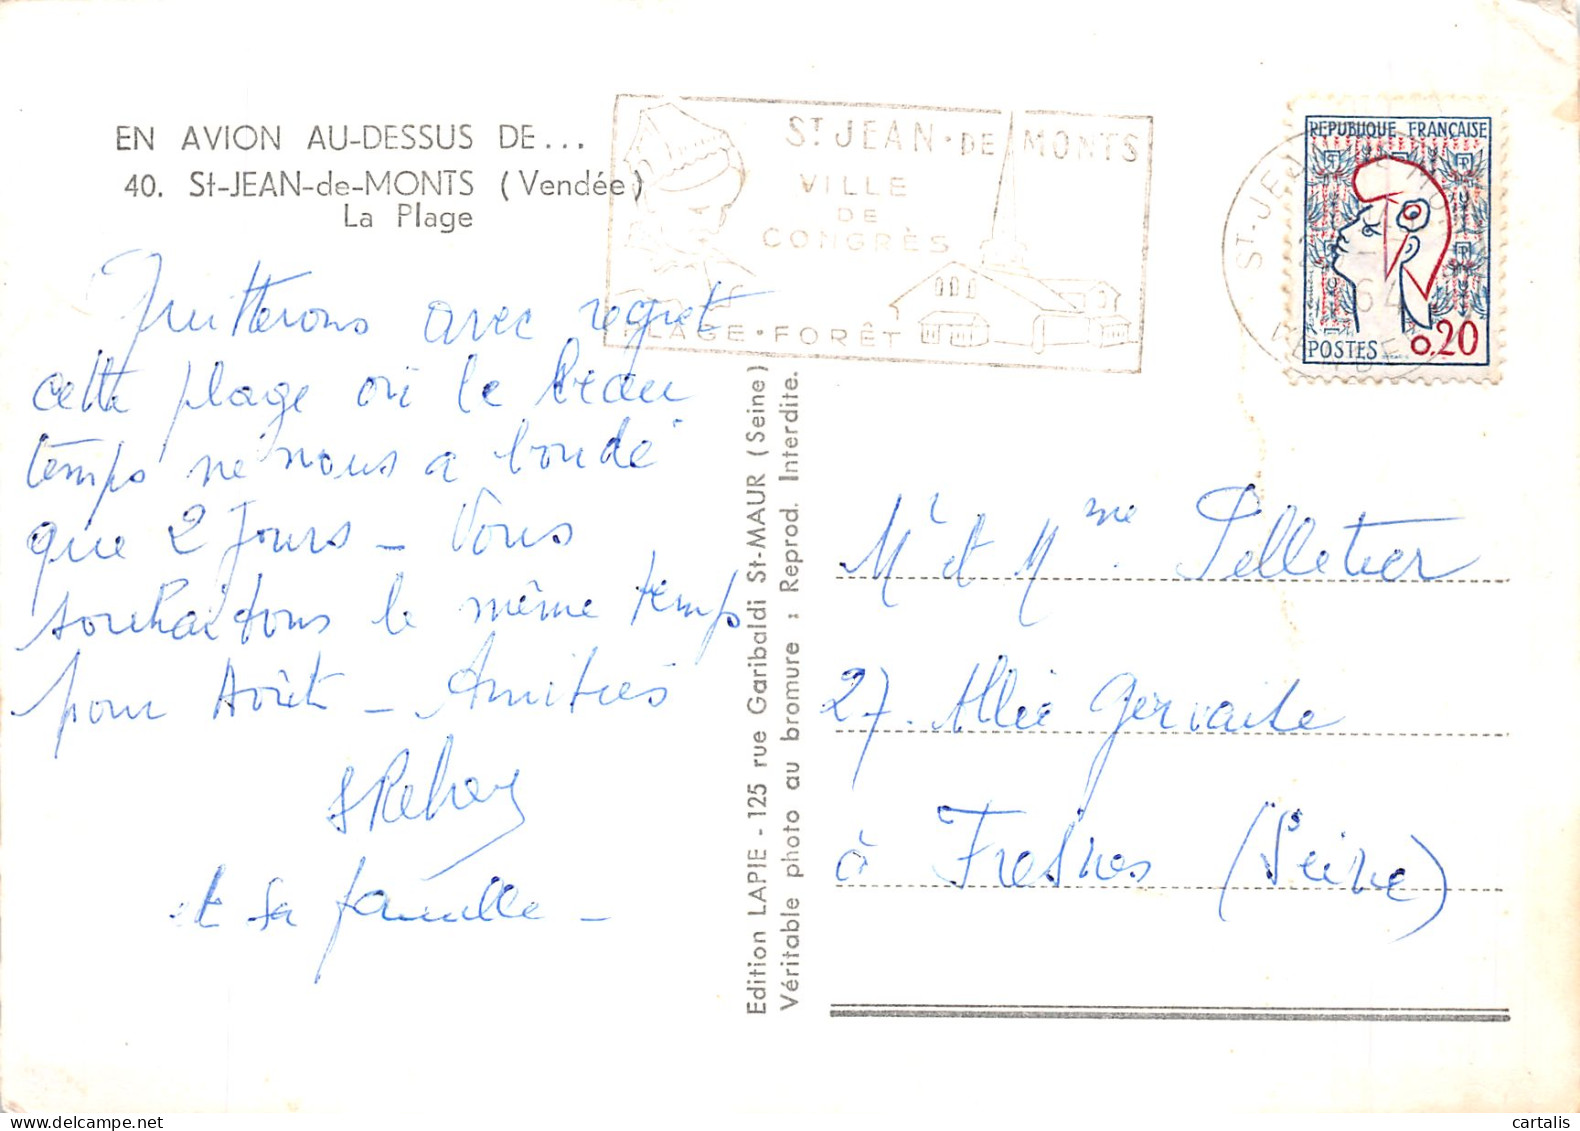 EN AVION AU-DESSUS DE...
40. St-JEAN-de-MONTS (Vendée)
La Plage
quitterons avec regret
cette plage où le beau
temps ne nous a boudé
que 2 Jours - Vous
souhaitons le même temps
pour Août - Amitiés
et sa famille -
ST JEAN·DE MONTS
VILLE
DE
CONGRÈS
PLAGE·FORÊT
ST-JEAN
64
VENDEE
REPUBLIQUE FRANÇAISE
POSTES 0,20
Edition LAPIE - 125 rue Garibaldi St-MAUR (Seine)
Véritable photo au bromure : Reprod. Interdite.
Mr et Mme Pelletier
27. Allée Gervaise
à Fresnes (Seine)
cartalis